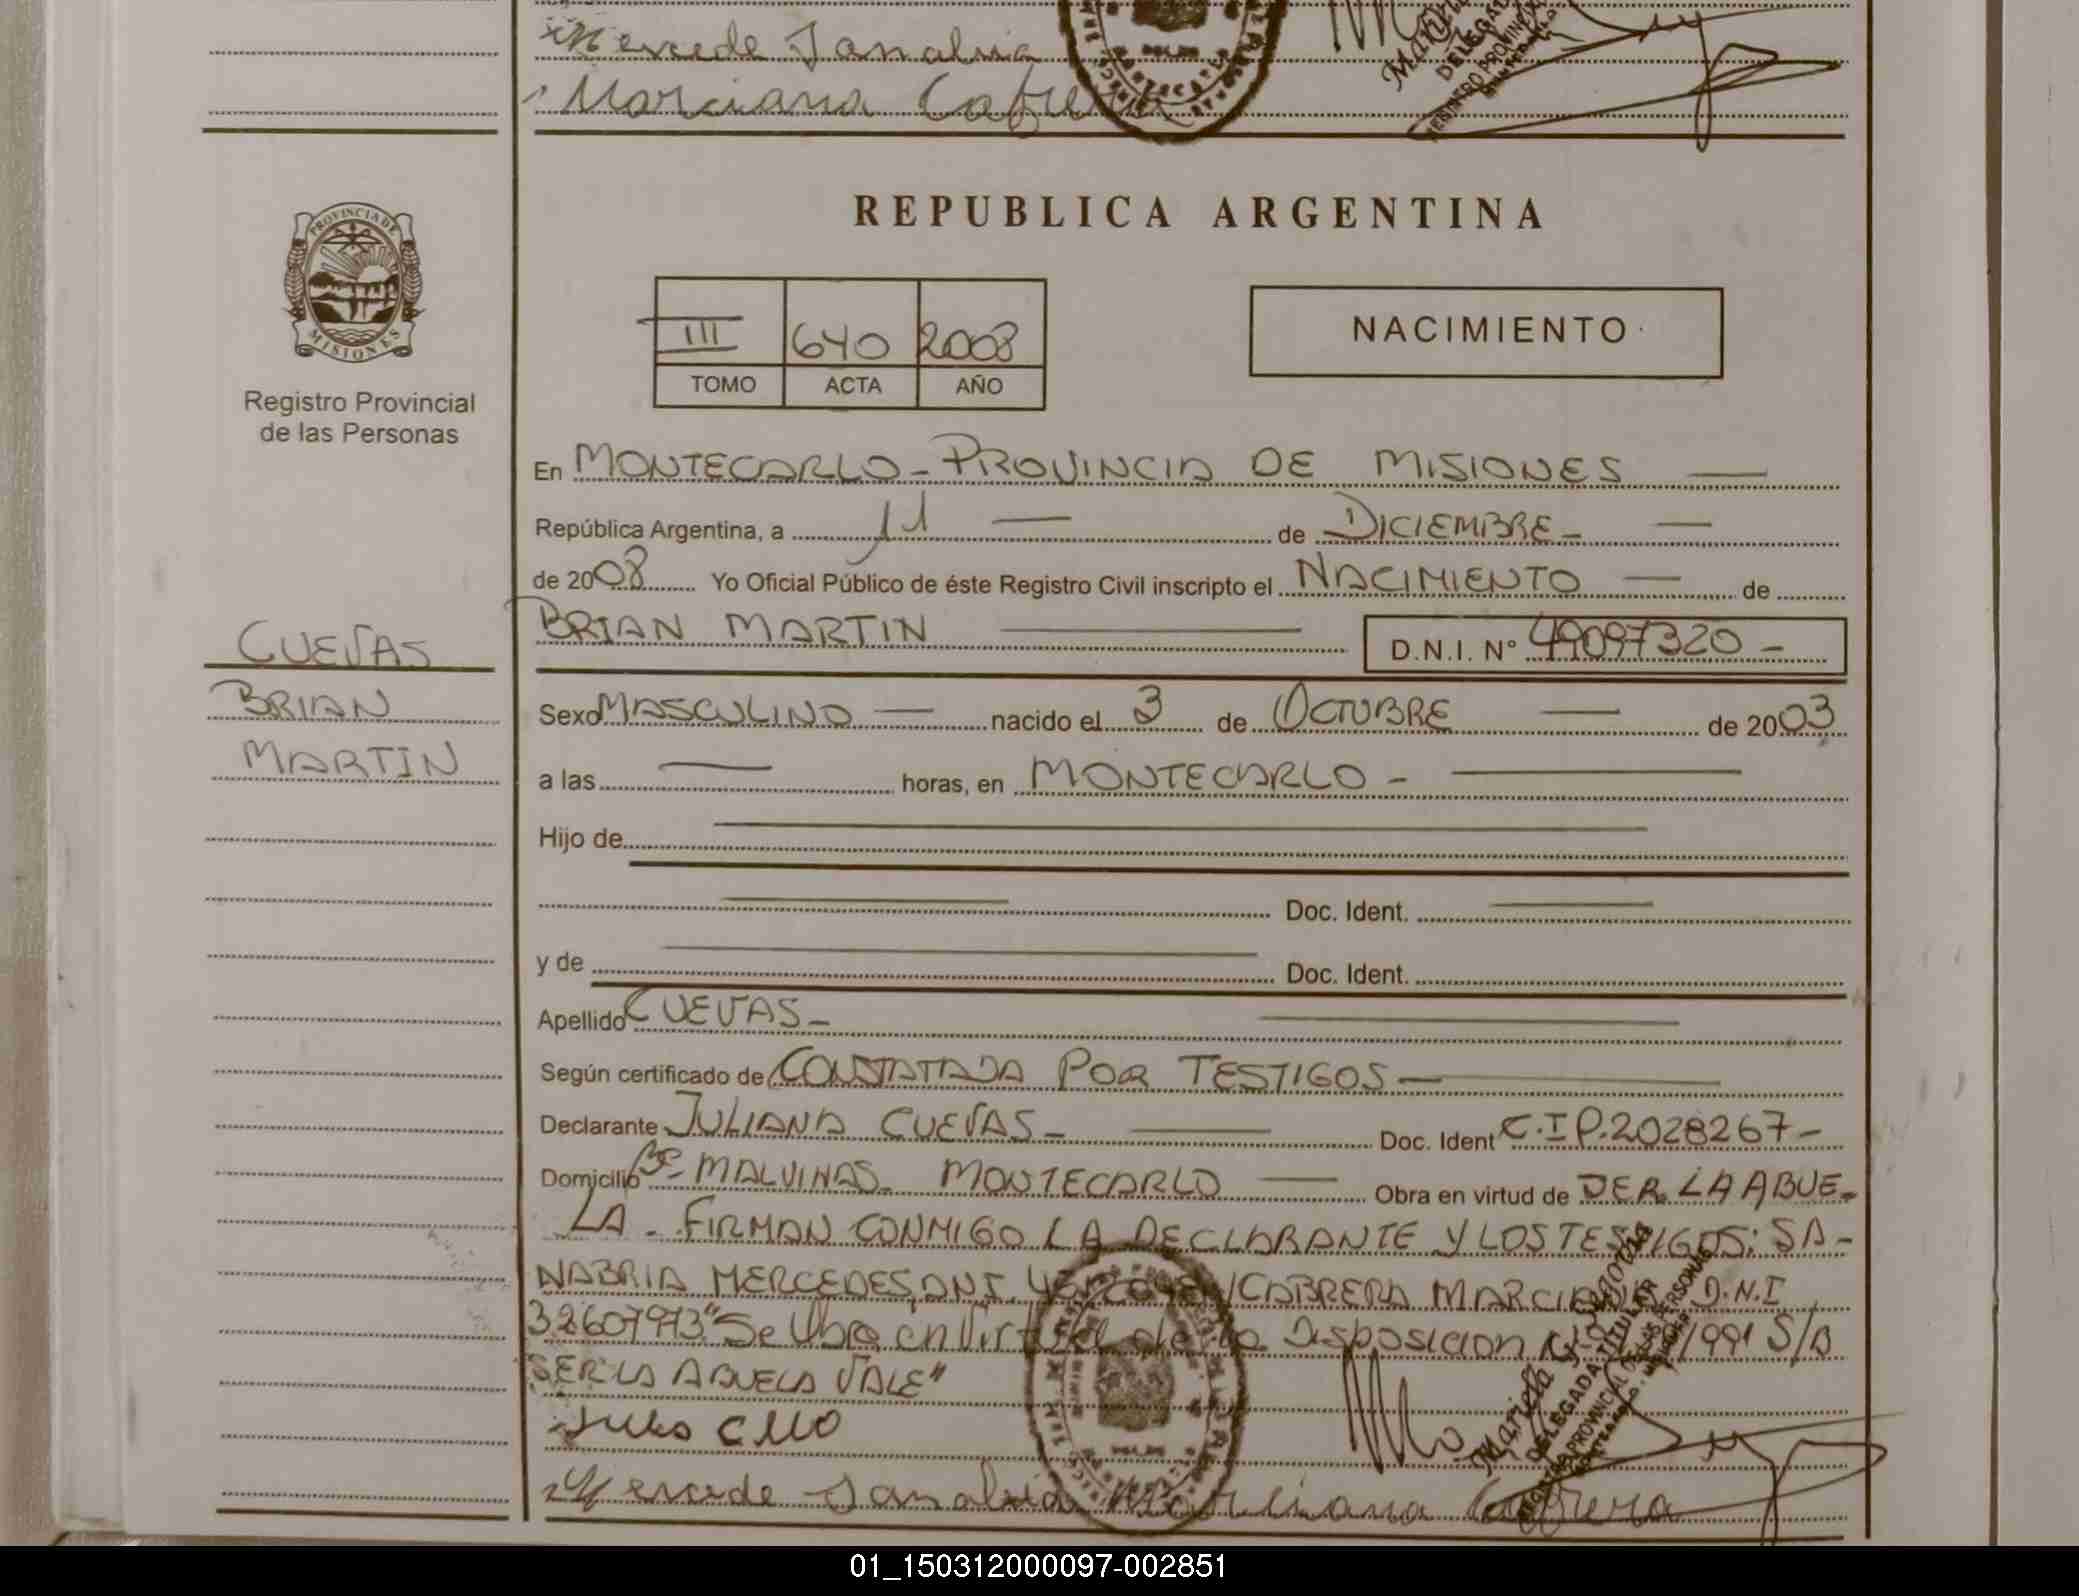 Mercede Sanabria
Marciana Cabrera
REPUBLICA ARGENTINA
PROVINCIA DE
MISIONES
Registro Provincial
de las Personas
III 640 2008
TOMO ACTA AÑO
NACIMIENTO
En MONTECARLO - PROVINCIA DE MISIONES —
República Argentina, a 11 — de DICIEMBRE - —
de 2008 Yo Oficial Público de éste Registro Civil inscripto el NACIMIENTO — de
BRIAN MARTIN — D.N.I. N° 49097320 -
CUEVAS
BRIAN
MARTIN
Sexo MASCULINO — nacido el 3 de OCTUBRE — de 2003
a las — horas, en MONTECARLO - —
Hijo de —
— Doc. Ident. —
y de — Doc. Ident.
Apellido CUEVAS - —
Según certificado de CONSTATADA POR TESTIGOS —
Declarante JULIANA CUEVAS - — Doc. Ident C.I P. 2028267 -
Domicilio Bº MALVINAS - MONTECARLO — Obra en virtud de DER. LA ABUE-
LA - FIRMAN CONMIGO LA DECLARANTE Y LOS TESTIGOS: SA-
NABRIA MERCEDES, DNI CABRERA MARCIANA D.N.I
32607973 "Se Obra en Virtud de la Disposicion 1991 S/D
SER LA ABUELA VALE"
Mercede Sanabria Marciana Cabrera
DELEGADA TITULAR
REGISTRO PROVINCIAL DE LAS PERSONAS
01_150312000097-002851